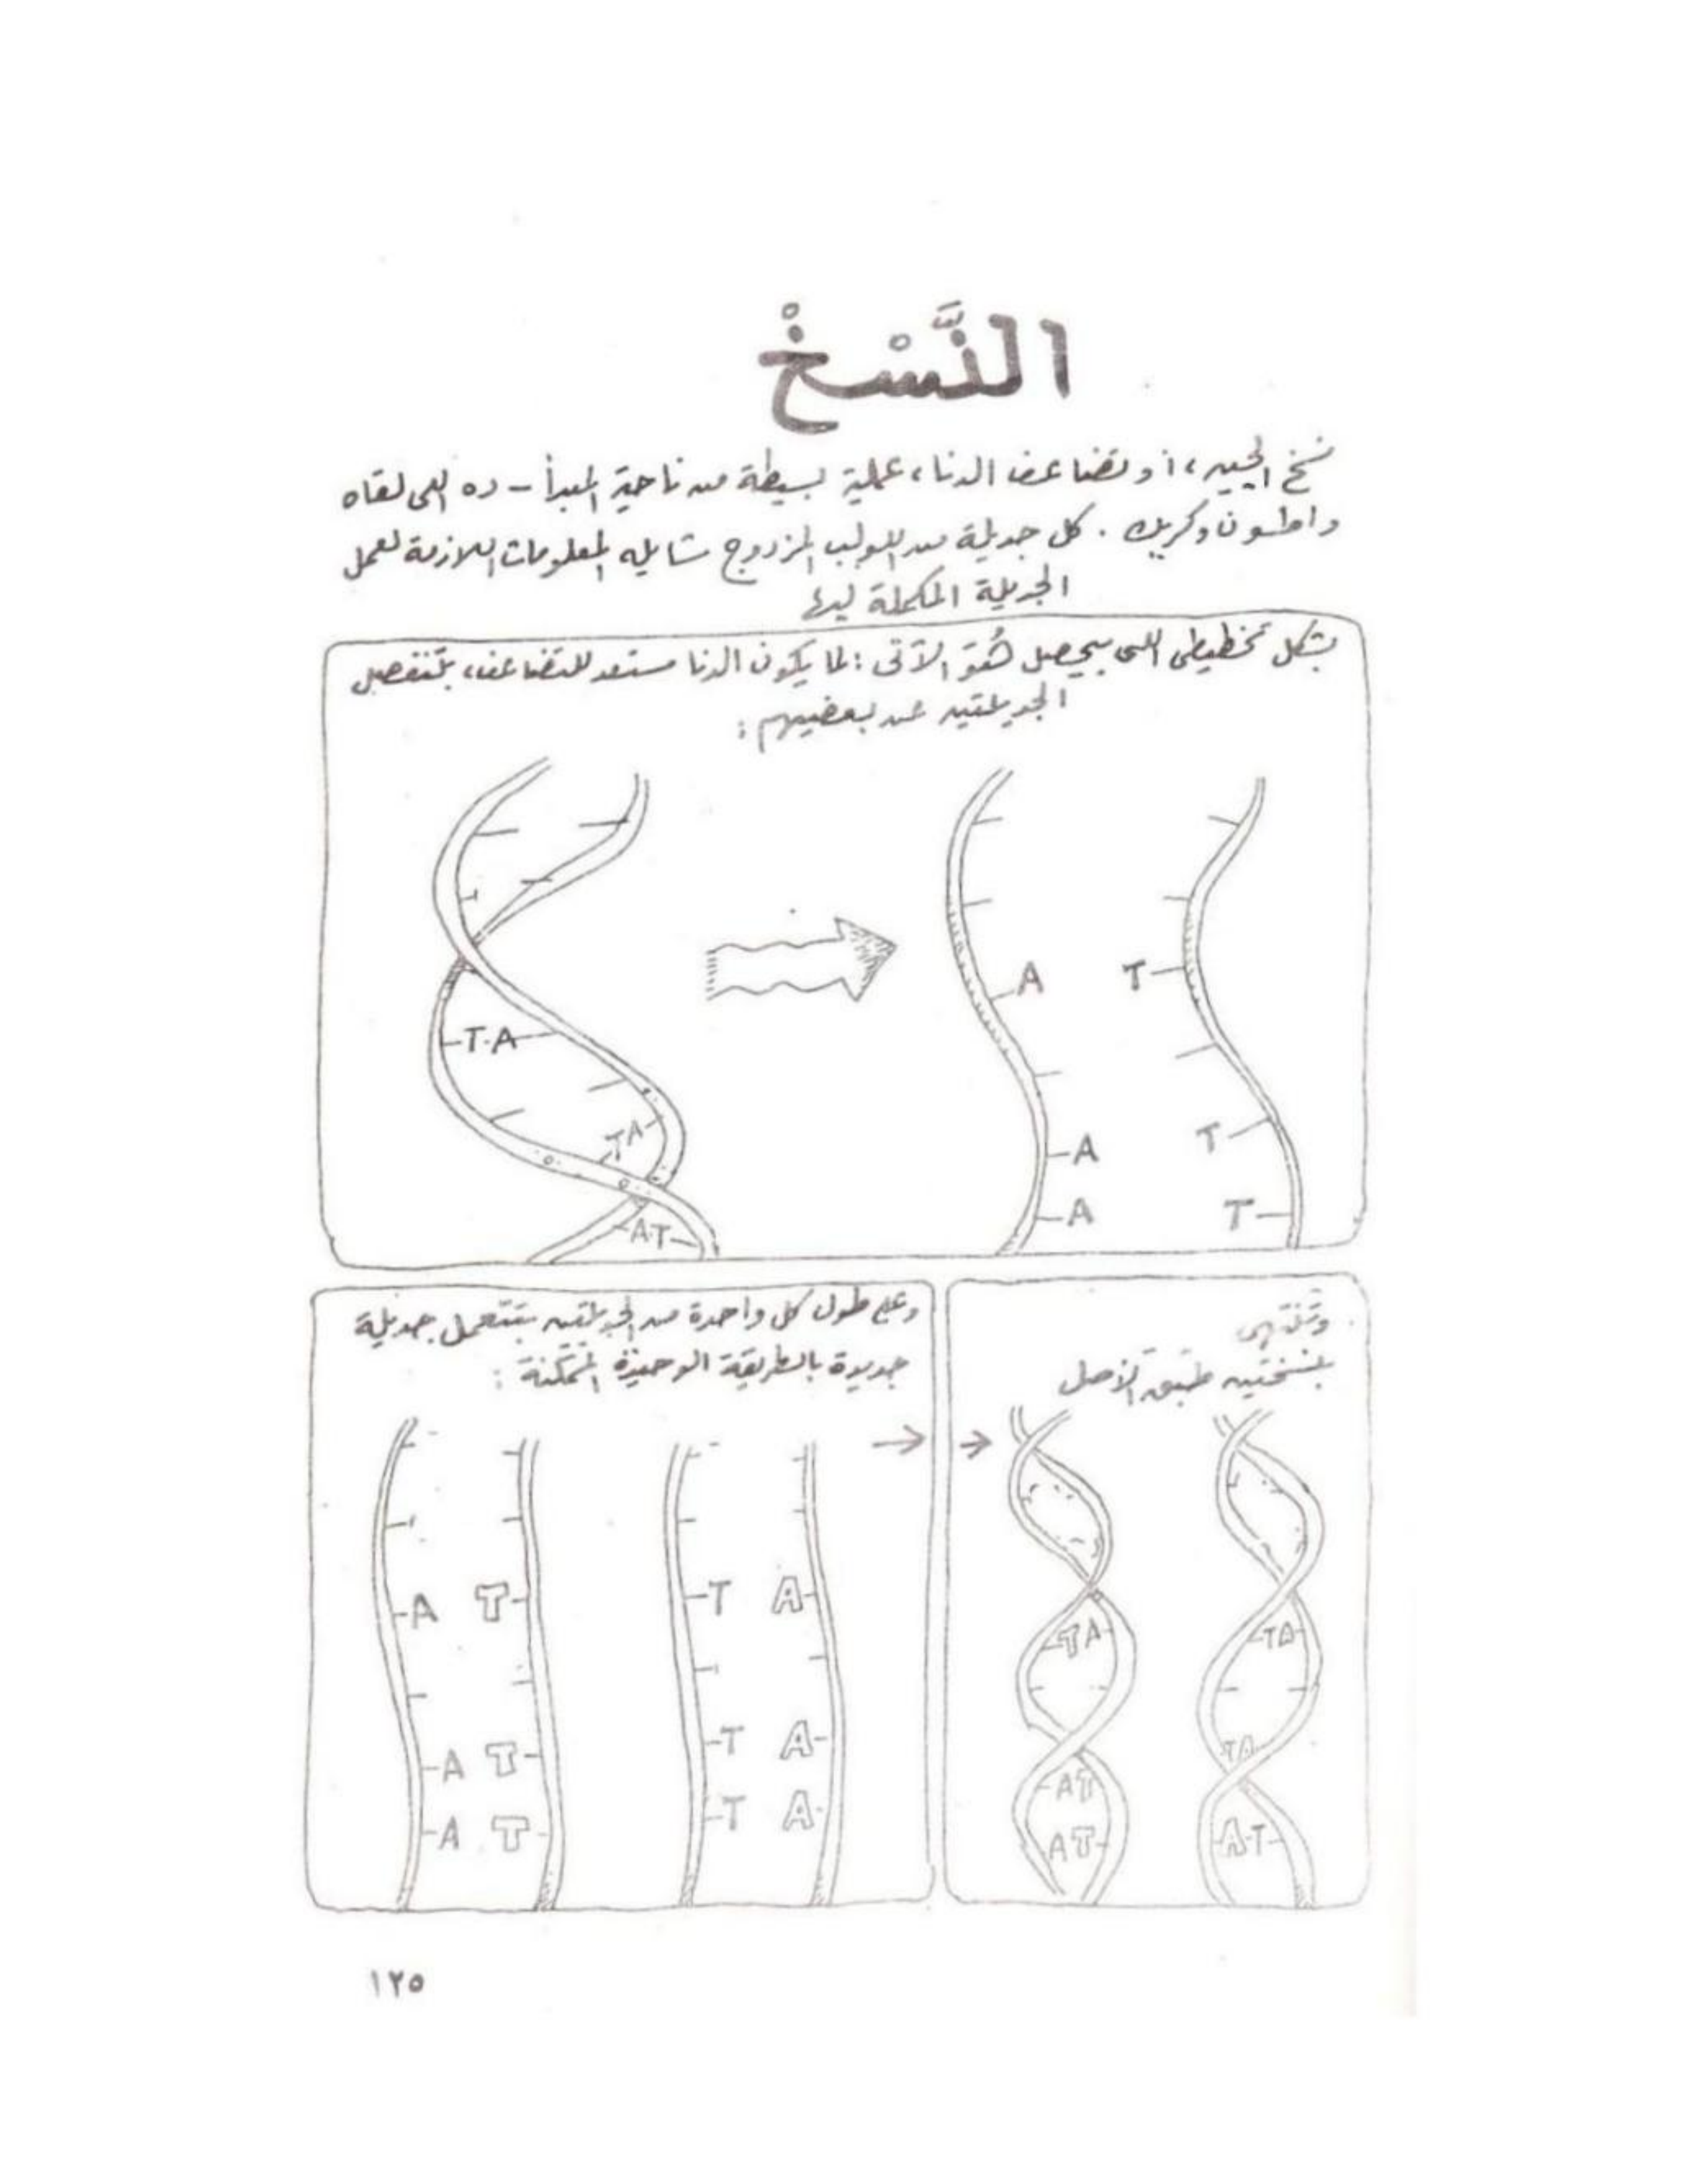 النَّسْخْ
نسخ الجين، أو تضاعف الدنا، عملية بسيطة من ناحية المبدأ – ده اللى لقاه
واطسون وكريك. كل جديلة من اللولب المزدوج شايله المعلومات اللازمة لعمل
الجديلة المكملة ليها
بشكل تخطيطى اللى بيحصل هُوَّ الآتى: لما يكون الدنا مستعد للتضاعف، بتنفصل
الجديلتين عن بعضيهم:
T-A
TA
A-T
A
T
A
T
A
T
وعلى طول كل واحدة من الجديلتين بتتعمل جديلة
جديدة بالطريقة الوحيدة الممكنة:
A T T A
A T T A
A T T A
وتنتهى
بنسختين طبق الأصل
TA TA
TA
AT
AT A-T
١٢٥